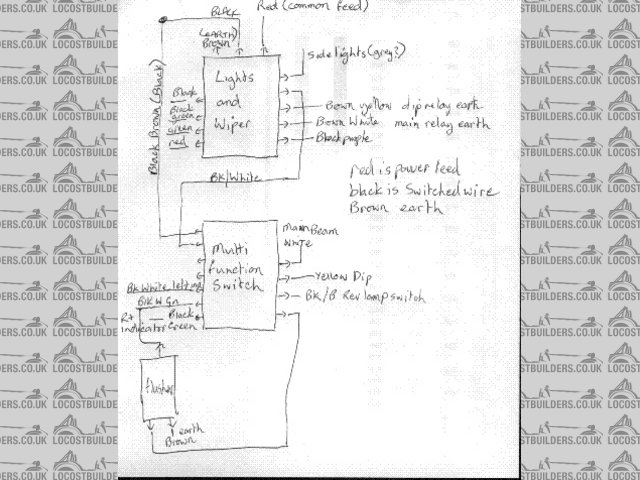 Red (common feed)
BLACK
(EARTH)
Brown
Side lights (grey?)
Lights
and
Wiper
Black
Black
green
green
red
Bown yellow dip relay earth
Bown White main relay earth
Black purple
Black Brown (Black)
red is power feed
black is Switched wire
Brown earth
BK/White
Main Beam
White
Multi
function
Switch
Yellow Dip
BK/B Rev lamp switch
BK White left
BlK W Gn
Black
Rt
indicator Green
flasher
earth
Brown
LOCOSTBUILDERS.CO.UK